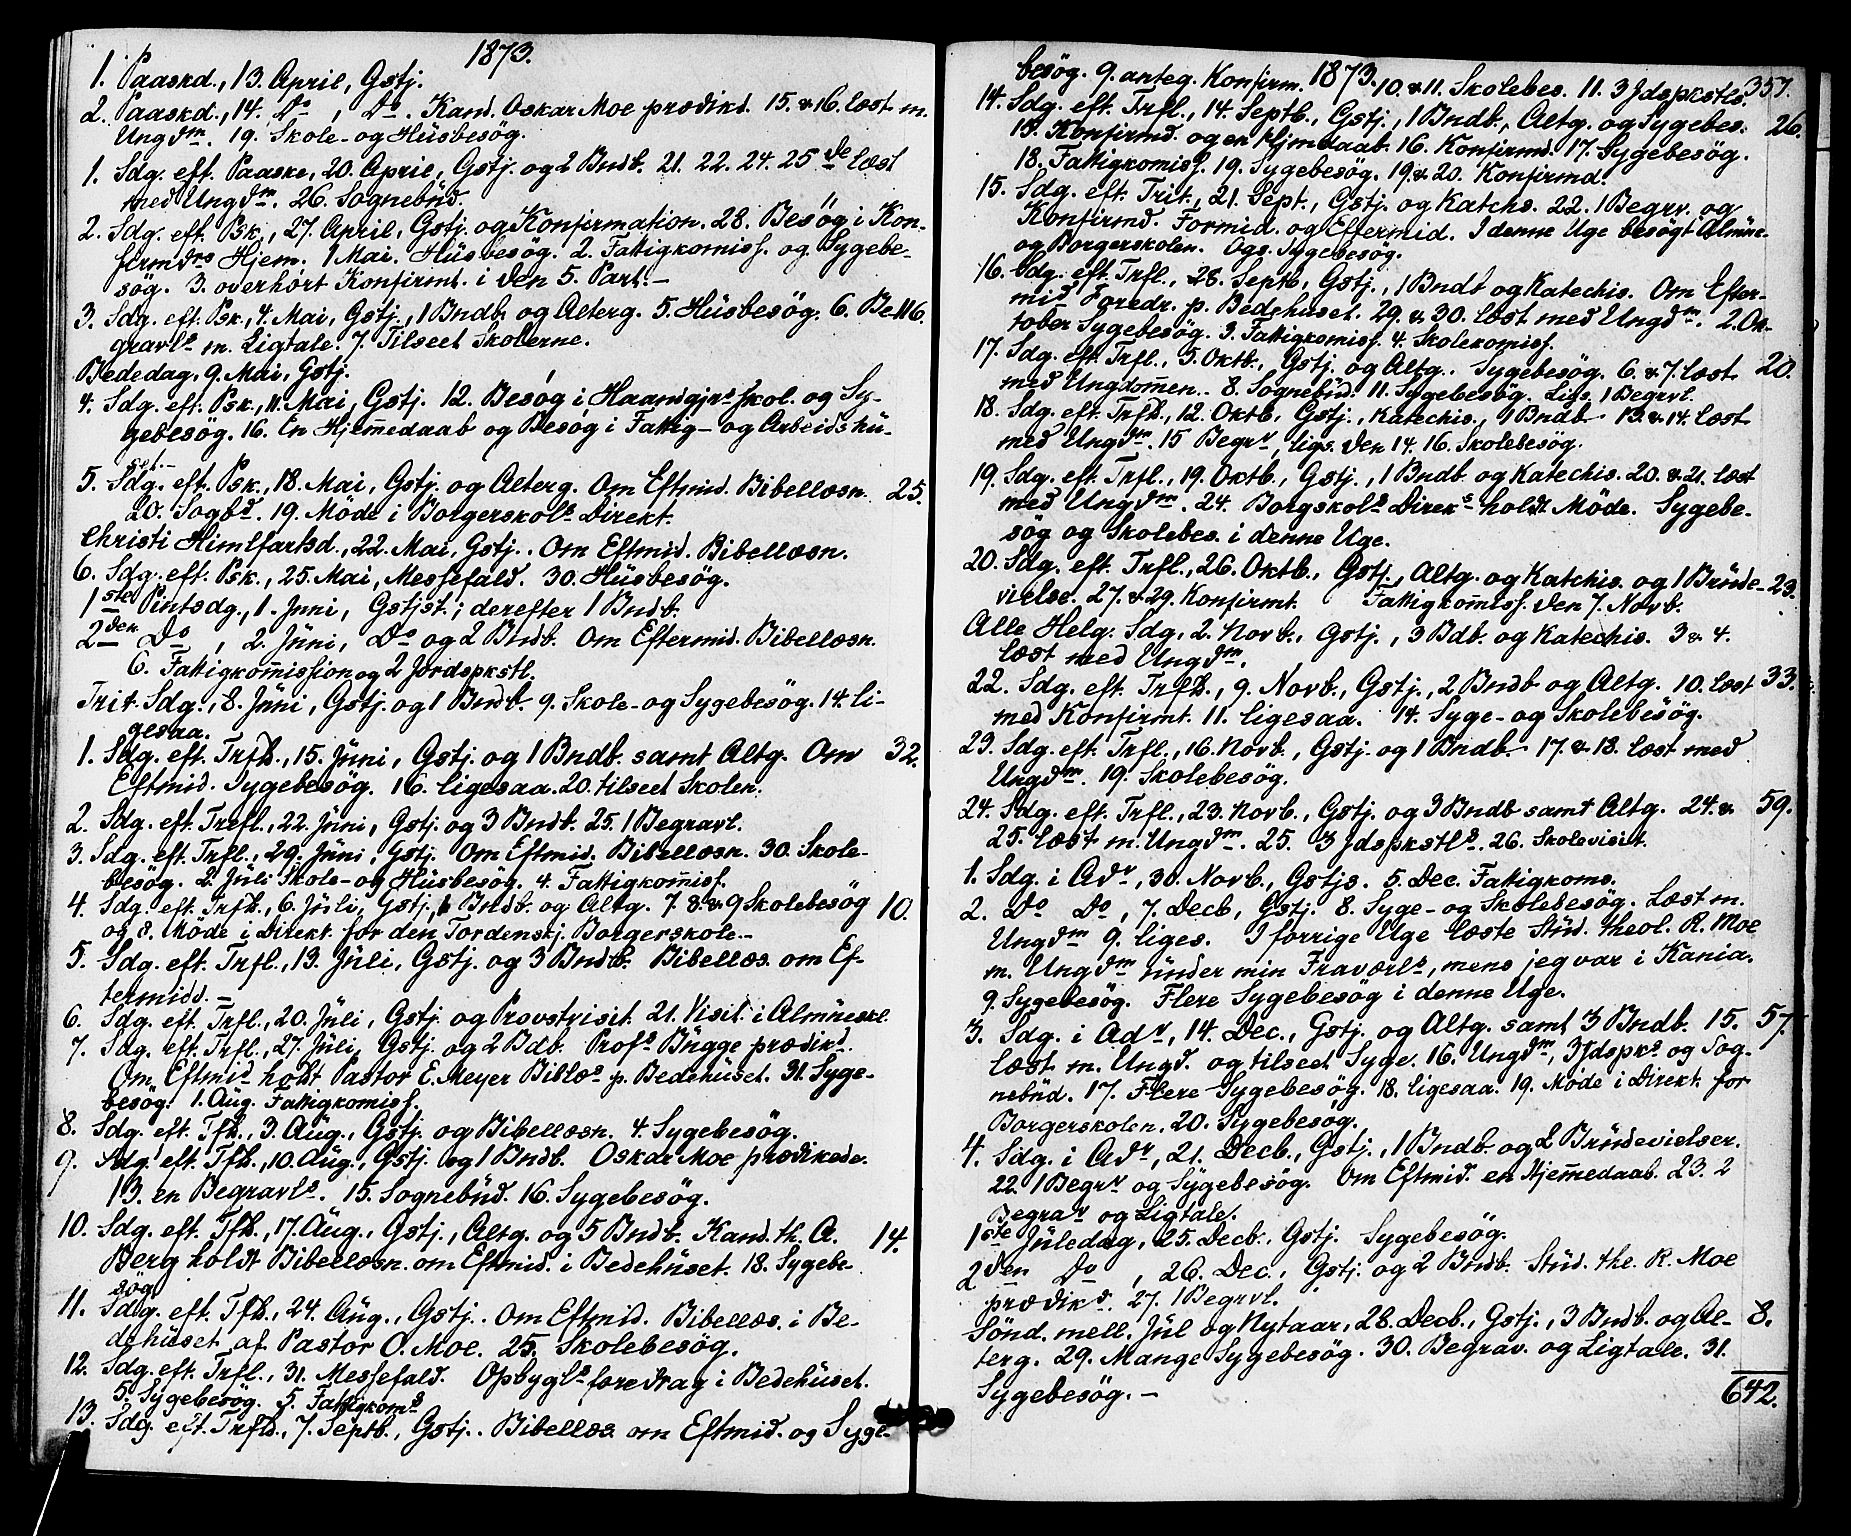 1873.
1. Paaskd., 13. April, Gstj.
2. Paaskd., 14. Do, Do. Kand. Oskar Moe prædikd. 15. & 16. læst m.
Ungdm. 19. Skole- og Husbesøg.
1. Sdg. eft. Paaske, 20. April, Gstj. og 2 Bndb. 21. 22. 24. 25de læst
med Ungdm. 26. Sognebud.
2. Sdg. eft. Psk., 27. April, Gstj. og Konfirmation. 28. Besøg i Kon-
firmdrs Hjem. 1 Mai. Husbesøg. 2. Fattigkomiss. og Sygebe-
søg. 3. overhørt Konfirmt. i den 5. Part. -
3. Sdg. eft. Psk., 4. Mai, Gstj., 1 Bndb. og Alterg. 5. Husbesøg. 6. Be- 116.
gravls m. Ligtale. 7. Tilseet Skolerne.
Bededag, 9. Mai, Gstj.
4. Sdg. eft. Psk., 11. Mai, Gstj. 12. Besøg i Haandgjrs Skol. og Sy-
gebesøg. 16. En Hjemmedaab og Besøg i Fattig- og Arbeidshu-
set. -
5. Sdg. eft. Psk., 18. Mai, Gstj. og Alterg. Om Eftmid. Bibellæsn. 25.
20. Sogbd. 19. Møde i Borgerskols Direkt.
Christi Himlfartsd., 22. Mai, Gstj. Om Eftmid. Bibellæsn.
6. Sdg. eft. Psk., 25. Mai, Messefald. 30. Husbesøg.
1ste Pintsdg., 1. Juni, Gstjst.; derefter 1 Bndb.
2den Do, 2. Juni, Do og 2 Bndb. Om Eftermid. Bibellæsn.
6. Fattigkommission og 2 Jordspkstl.
Trit. Sdg., 8. Juni, Gstj. og 1 Bndb. 9. Skole- og Sygebesøg. 14. li-
gesaa.
1. Sdg. eft. Trfld., 15. Juni, Gstj. og 1 Bndb. samt Altg. Om 32.
Eftmid. Sygebesøg. 16. ligesaa. 20. tilseet Skolen.
2. Sdg. eft. Trefl., 22. Juni, Gstj. og 3 Bndb. 25. 1 Begravl.
3. Sdg. eft. Trfl., 29. Juni, Gstj. Om Eftmid. Bibellæsn. 30. Skole-
besøg. 2. Juli Skole- og Husbesøg. 4. Fattigkomiss.
4. Sdg. eft. Trfld., 6. Juli, Gstj., Bndb. og Altg. 7. 8. & 9 Skolebesøg 10.
og 8. Møde i Direkt. for den Tordenskj. Borgerskole. -
5. Sdg. eft. Trfl., 13. Juli, Gstj. og 3 Bndb. Bibellæs. om Ef-
termidd. -
6. Sdg. eft. Trfl., 20. Juli, Gstj. og Provstvisit. 21. Visit. i Almueskl.
7. Sdg. eft. Trfl., 27. Juli, Gstj. og 2 Bdb. Profs Bugge prædikd.
Om Eftmid holdt Pastor E. Meyer Biblæs p. Bedehuset. 31. Syge-
besøg. 1. Aug. Fattigkomiss.
8. Sdg. eft. Tfld., 3. Aug., Gstj. og Bibellæsn. 4. Sygebesøg.
9. Sdg. eft. Tfld., 10. Aug., Gstj. og 1 Bndb. Oskar Moe prædikede.
13. en Begravls. 15. Sognebud. 16. Sygebesøg.
10. Sdg. eft. Tfld., 17. Aug., Gstj., Altg. og 5 Bndb. Kand. th. A. 14.
Berg holdt Bibellæsn. om Eftmid. i Bedehuset. 18. Sygebe-
søg.
11. Sdg. eft. Tfld., 24. Aug., Gstj. Om Eftmid. Bibellæs. i Be-
dehuset af Pastor O. Moe. 25. Skolebesøg.
12. Sdg. eft. Trfl., 31. Messefald. Opbygls foredrag i Bedehuset.
5. Sygebesøg. 5. Fattigkoms
13. Sdg. eft. Trfld., 7. Septb., Gstj. Bibellæs om Eftmid. og Syge-
1873.
357.
besøg. 9. anteg. Konfirm. 10. & 11. Skolebes. 11. 3 Jdspkstls.
14. Sdg. eft. Trfl., 14. Septb., Gstj., 1 Bndb., Altg. og Sygebes. 26.
15. Konfirmd. og en Hjmdaab. 16. Konfirmd. 17. Sygebesøg.
18. Fattigkomiss. 19. Sygebesøg. 19. & 20. Konfirmd.
15. Sdg. eft. Trit., 21. Sept., Gstj. og Katchs. 22. 1 Begrv. og
Konfirmd. Formid. og Eftermid. I denne Uge besøgt Almue-
og Borgerskolen. Ogs. Sygebesøg.
16. Sdg. eft. Trfl., 28. Septb, Gstj., 1 Bndb og Katechis. Om Efter-
mid Foredr. p. Bedehuset. 29. & 30. læst med Ungdm. 2. Ok-
tober Sygebesøg. 3. Fattigkomiss. 4. Skolekomiss.
17. Sdg. eft. Trfl., 5. Oktb., Gstj. og Altg. Sygebesøg. 6. & 7. læst 20.
med Ungdomen. 8. Sognebud. 11. Sygebesøg. Ligs. 1 Begrvl.
18. Sdg. eft. Trfld., 12. Oktb., Gstj., Katechis., 1 Bndb 13. & 14. læst
med Ungdm. 15 Begrv, ligs. den 14. 16. Skolebesøg.
19. Sdg. eft. Trfl., 19. Oktb., Gstj., 1 Bndb og Katechis. 20. & 21. læst
med Ungdm. 24. Borgskols Direks holdt Møde. Sygebe-
søg og Skolebes. i denne Uge.
20. Sdg. eft. Trfl., 26. Oktb., Gstj., Altg. og Katchis. og 1 Brude- 23.
vielse. 27. & 29. Konfirmt. Fattigkomiss. den 7. Novb.
Alle Helg. Sdg, 2. Novb., Gstj., 3 Bdb. og Katechis. 3 & 4.
læst med Ungdm.
22. Sdg. eft. Trfld., 9. Novb., Gstj., 2 Bndb og Altg. 10. læst 33.
med Konfirmt. 11. ligesaa. 14. Syge- og Skolebesøg.
23. Sdg. eft. Trfl., 16. Novb., Gstj. og 1 Bndb 17. & 18. læst med
Ungdm. 19. Skolebesøg.
24. Sdg. eft. Trfl., 23. Novb., Gstj. og 3 Bndb samt Altg. 24. & 59.
25. læst m. Ungdm. 25. 3 Jdspkstls. 26. Skolevisit.
1. Sdg. i Adv, 30. Novb., Gstjs. 5. Dec. Fattigkoms.
2. Do Do, 7. Decb, Gstj. 8. Syge- og Skolebesøg. Læst m.
Ungdm 9. liges. I forrige Uge læste Stud. theol. R. Moe
m. Ungdm under min Fraværls, mens jeg var i Kania.
9. Sygebesøg. Flere Sygebesøg i denne Uge.
3. Sdg. i Adv, 14. Dec., Gstj. og Altg. samt 3 Bndb. 15. 57.
læst m. Ungd. og tilseet Syge. 16. Ungdm, 3 Jdspks og Sog-
nebud. 17. Flere Sygebesøg. 18. ligesaa. 19. Møde i Direkt. for
Borgerskolen. 20. Sygebesøg.
4. Sdg. i Adv, 21. Decb., Gstj., 1 Bndb. og 2 Brudevielser.
22. 1 Begrv og Sygebesøg. Om Eftmid. en Hjemmedaab. 23. 2
Begrav og Ligtale.
1ste Juledag, 25. Decb., Gstj. Sygebesøg.
2den Do, 26. Dec., Gstj. og 2 Bndb. Stud. the. R. Moe
prædikd. 27. 1 Begrvl.
Sønd. mell. Jul og Nytaar, 28. Decb., Gstj., 3 Bndb. og Al- 8.
terg. 29. Mange Sygebesøg. 30. Begrav. og Ligtale. 31.
Sygebesøg. -
642.